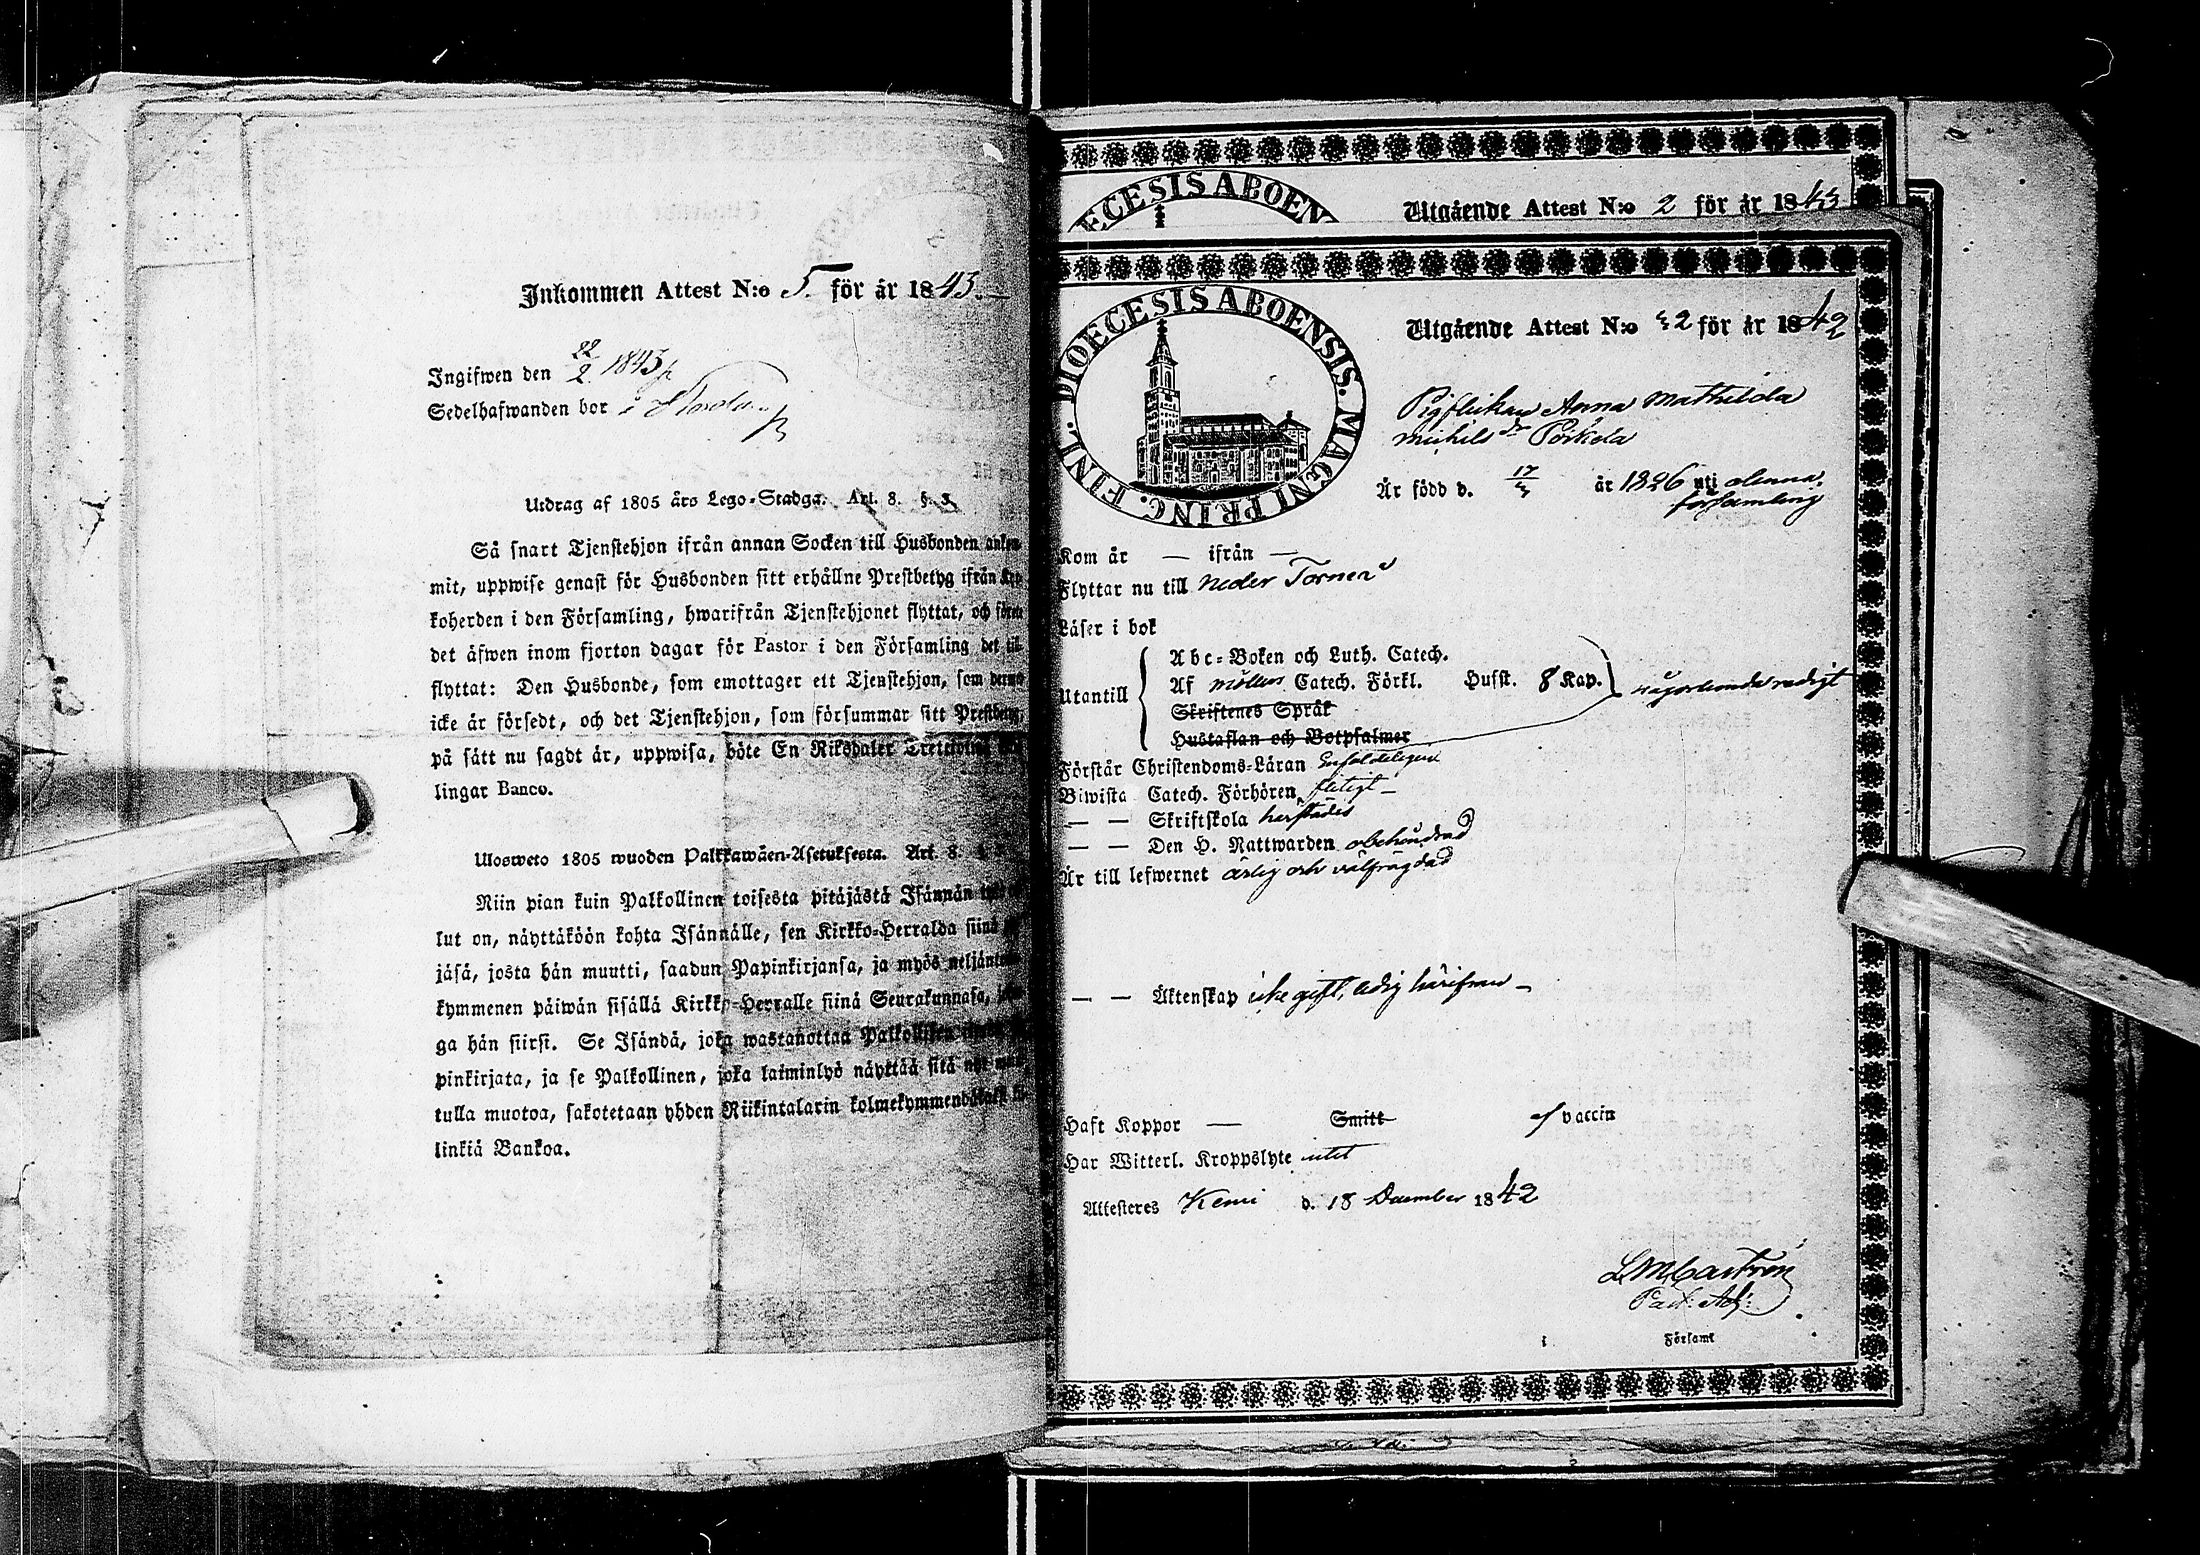 Inkommen Attest N:o 5. för år 1843.
Ingifwen den 22/2 1843
Sedelhafwanden bor i
Utdrag af 1805 års Lego-Stadga. Art. 8. §. 3.
Så snart Tjenstehjon ifrån annan Socken till Husbonden
mit, uppwise genast för Husbonden sitt erhållne Prestbetyg ifrån
koherden i den Församling, hwarifrån Tjenstehjonet flyttat, och
det äfwen inom fjorton dagar för Pastor i den Församling det
flyttat: Den Husbonde, som emottager ett Tjenstehjon, som
icke är försedt, och det Tjenstehjon, som försummar sitt
på sätt nu sagdt är, uppwisa, böte En Riksdaler
lingar Banco.
Ulosweto 1805 wuoden Palkkawäen-Asetuksesta. Art. 8.
Niin pian kuin Palkollinen toisesta pitäjästä Isännän
lut on, näyttäköön kohta Isännälle, sen Kirkko-Herralda siinä
jäsä, josta hän muutti, saadun Papinkirjansa, ja myös
kymmenen päiwän sisällä Kirkko-Herralle siinä Seurakunnasa,
ga hän siirsi. Se Isändä, joka wastanottaa Palkollisen
pinkirjata, ja se Palkollinen, joka laiminlyö näyttää sitä
tulla muotoa, sakotetaan yhden Riikintalarin
linkiä Bankoa.
ECESIS ABOEN
Utgående Attest N:o 2 för år 1843
DIOECESIS ABOENSIS. MAGNI PRINC. FINL.
Utgående Attest N:o 32 för år 1842
Pigflickan Anna Mathilda
Michels dr Pörkola
Är född d. 17/3 år 1826 uti denna
församling
Kom år — ifrån —
Flyttar nu till Neder Torneå
Läser i bok
Abc-Boken och Luth. Catech.
Utantill Af Möllers Catech. Förkl. Husst. 8 Kap. någorlunda redigt
Skriftenes Språk
Hustaflan och Botpsalmer
Förstår Christendoms-Läran Enfaldeligen
Biwista Catech. Förhören flitigt —
— — Skriftskola herstädes
— — Den H. Nattwarden obehindrad
Är till lefwernet ärlig och välfrägdad
— — Äktenskap icke gift, ledig härifrån —
Haft Koppor — Smitt af vaccin
Har Witterl. Kroppslyte intet
Attesteres Kemi d. 18 December 1842
LMCastrén
Past: Adj:
i Församl